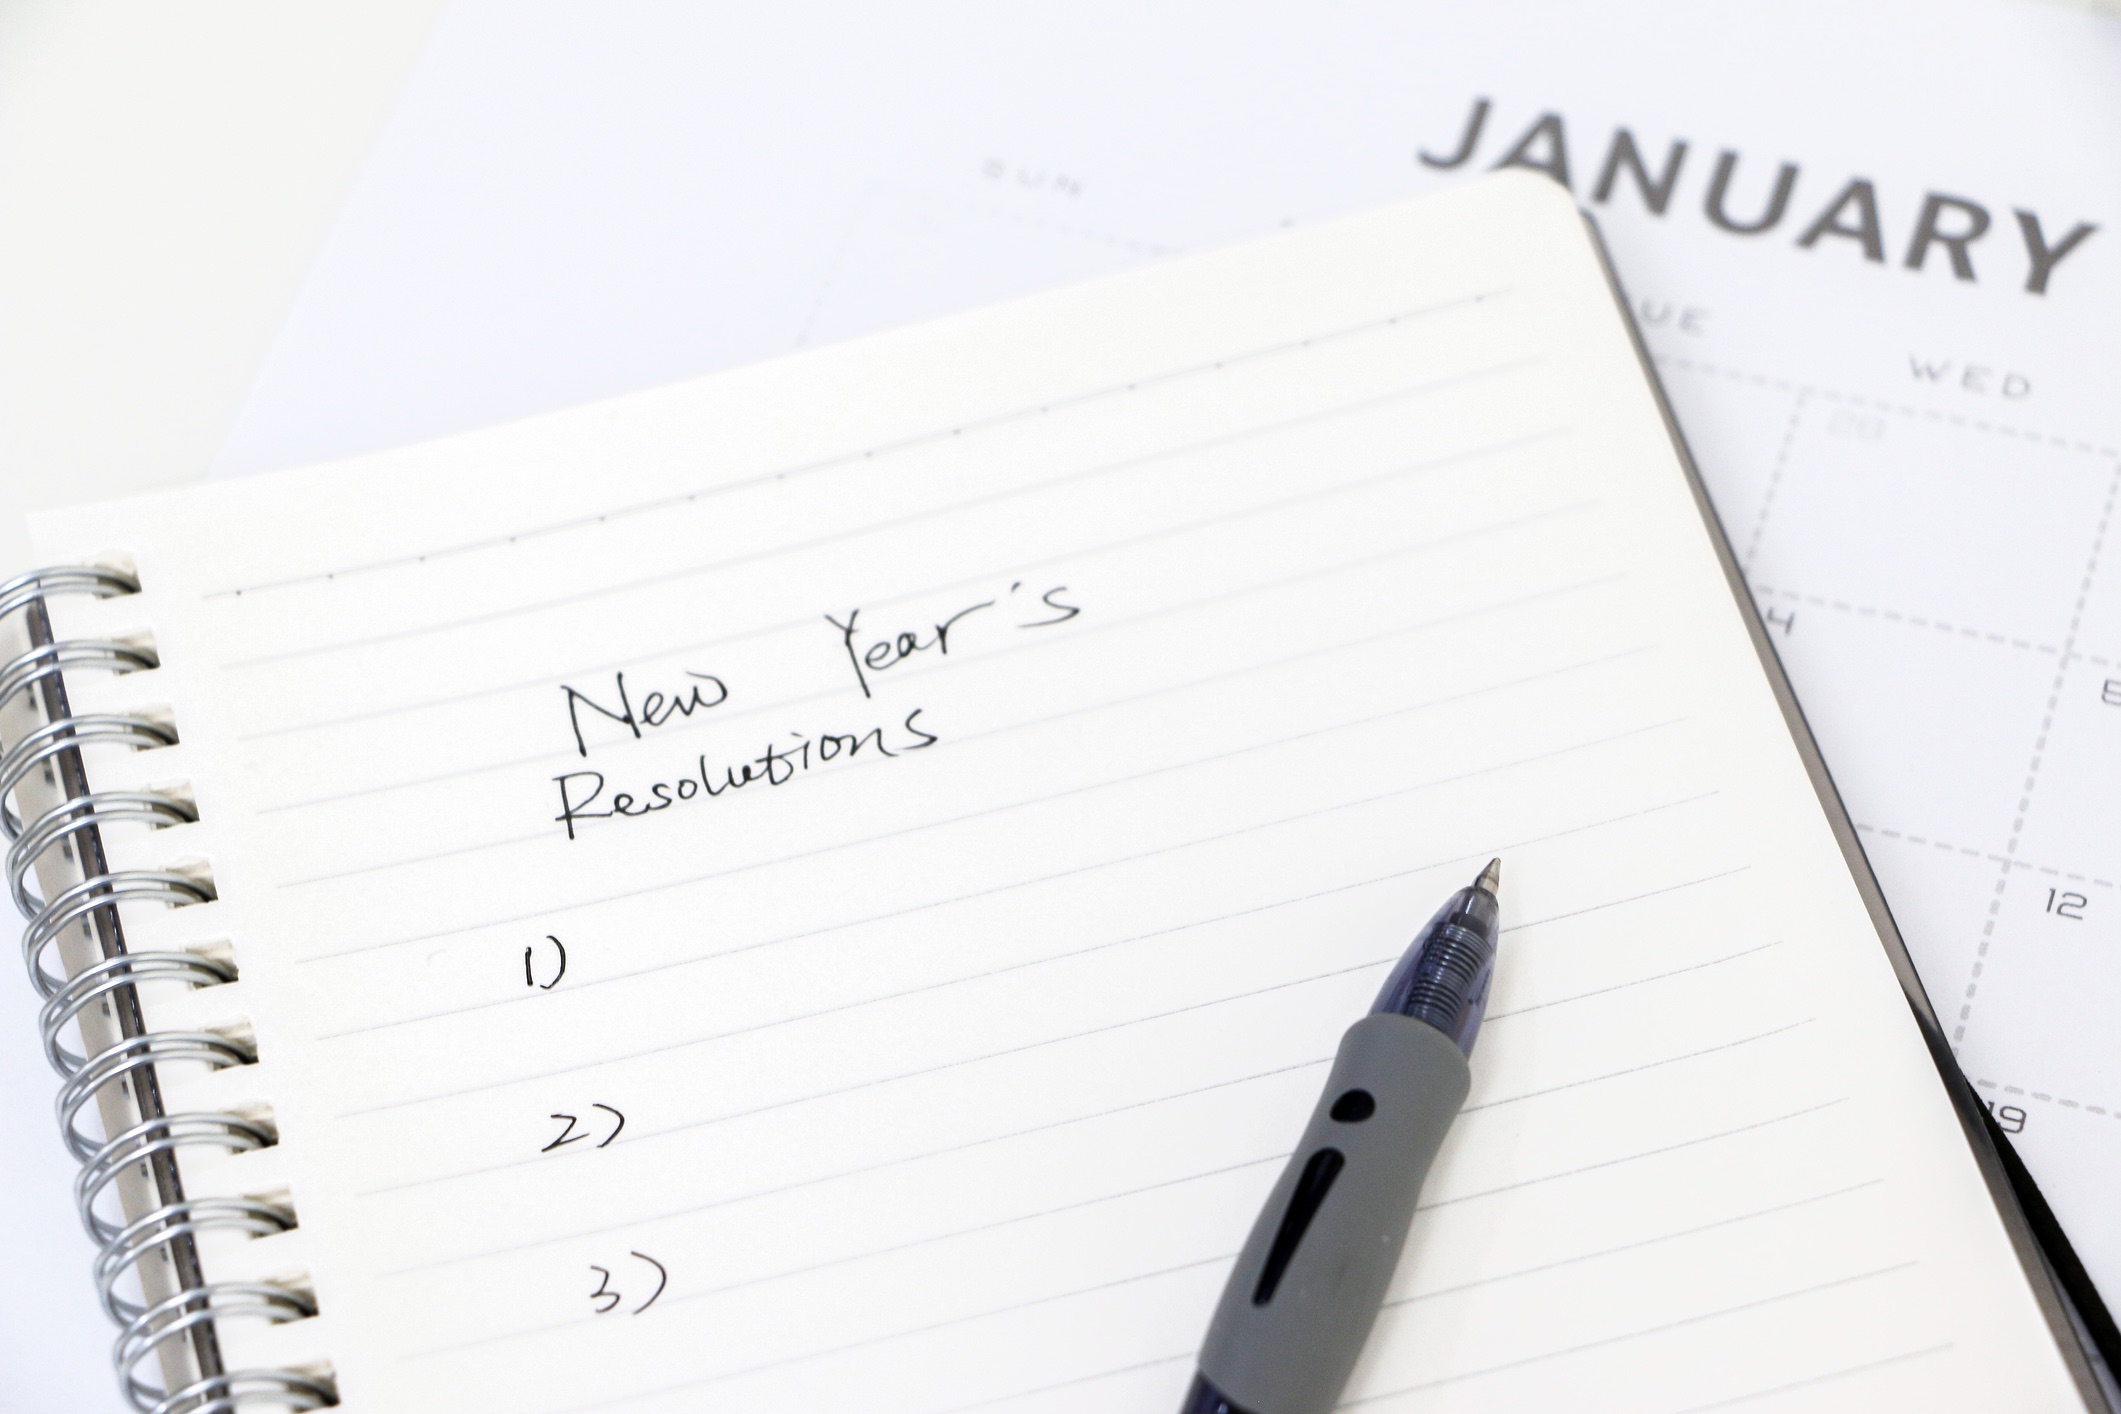 JANUARY
SUN
UE
WED
28
4
5
12
19
New Year's
Resolutions
1)
2)
3)